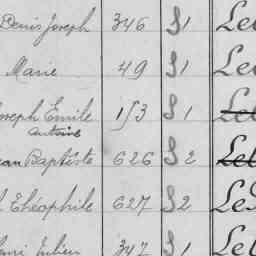 Denis Joseph 346 S1 Le
Marie 49 S1 Le
Joseph Emile 153 S1 Le
Antoine
Jean Baptiste 626 S2 Le
Théophile 627 S2 Le
Henri Julien 347 S1 Le